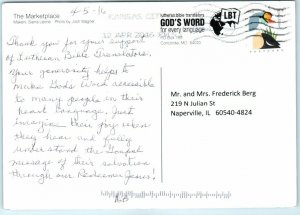 4-5-16
The Marketplace
KANSAS CITY
12 APR 2016 PM
lutheran bible translators
GOD'S WORD
for every language
LBT
Concordia, MO 64020
Thank you for your support
of Lutheran Bible Translators.
Your generosity helps to
make God's Word accessible
to many people in their
heart language. Just
imagine their joy when
they hear and fully
understand the Gospel
message of their salvation
through our Redeemer Jesus!
Mr. and Mrs. Frederick Berg
219 N Julian St
Naperville, IL 60540-4824